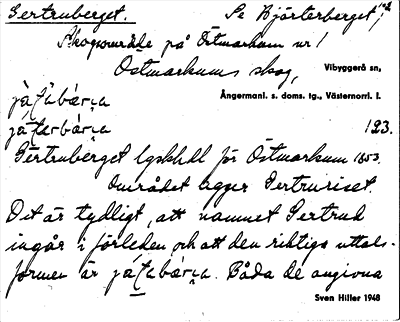 Gertruberget. Se Björterberget,
Skogsområde på Östmarkum nr 1
Östmarkums skog, Vibyggerå sn,
Ångermanl. s. doms. tg., Västernorrl. l.
123.
Gertruberget lgskhdl för Östmarkum 1853.
Området ligger Gertruriset.
Det är tydligt, att namnet Gertrud
ingår i förleden och att den riktiga uttals-
formen är Båda de angivna
Sven Hiller 1948